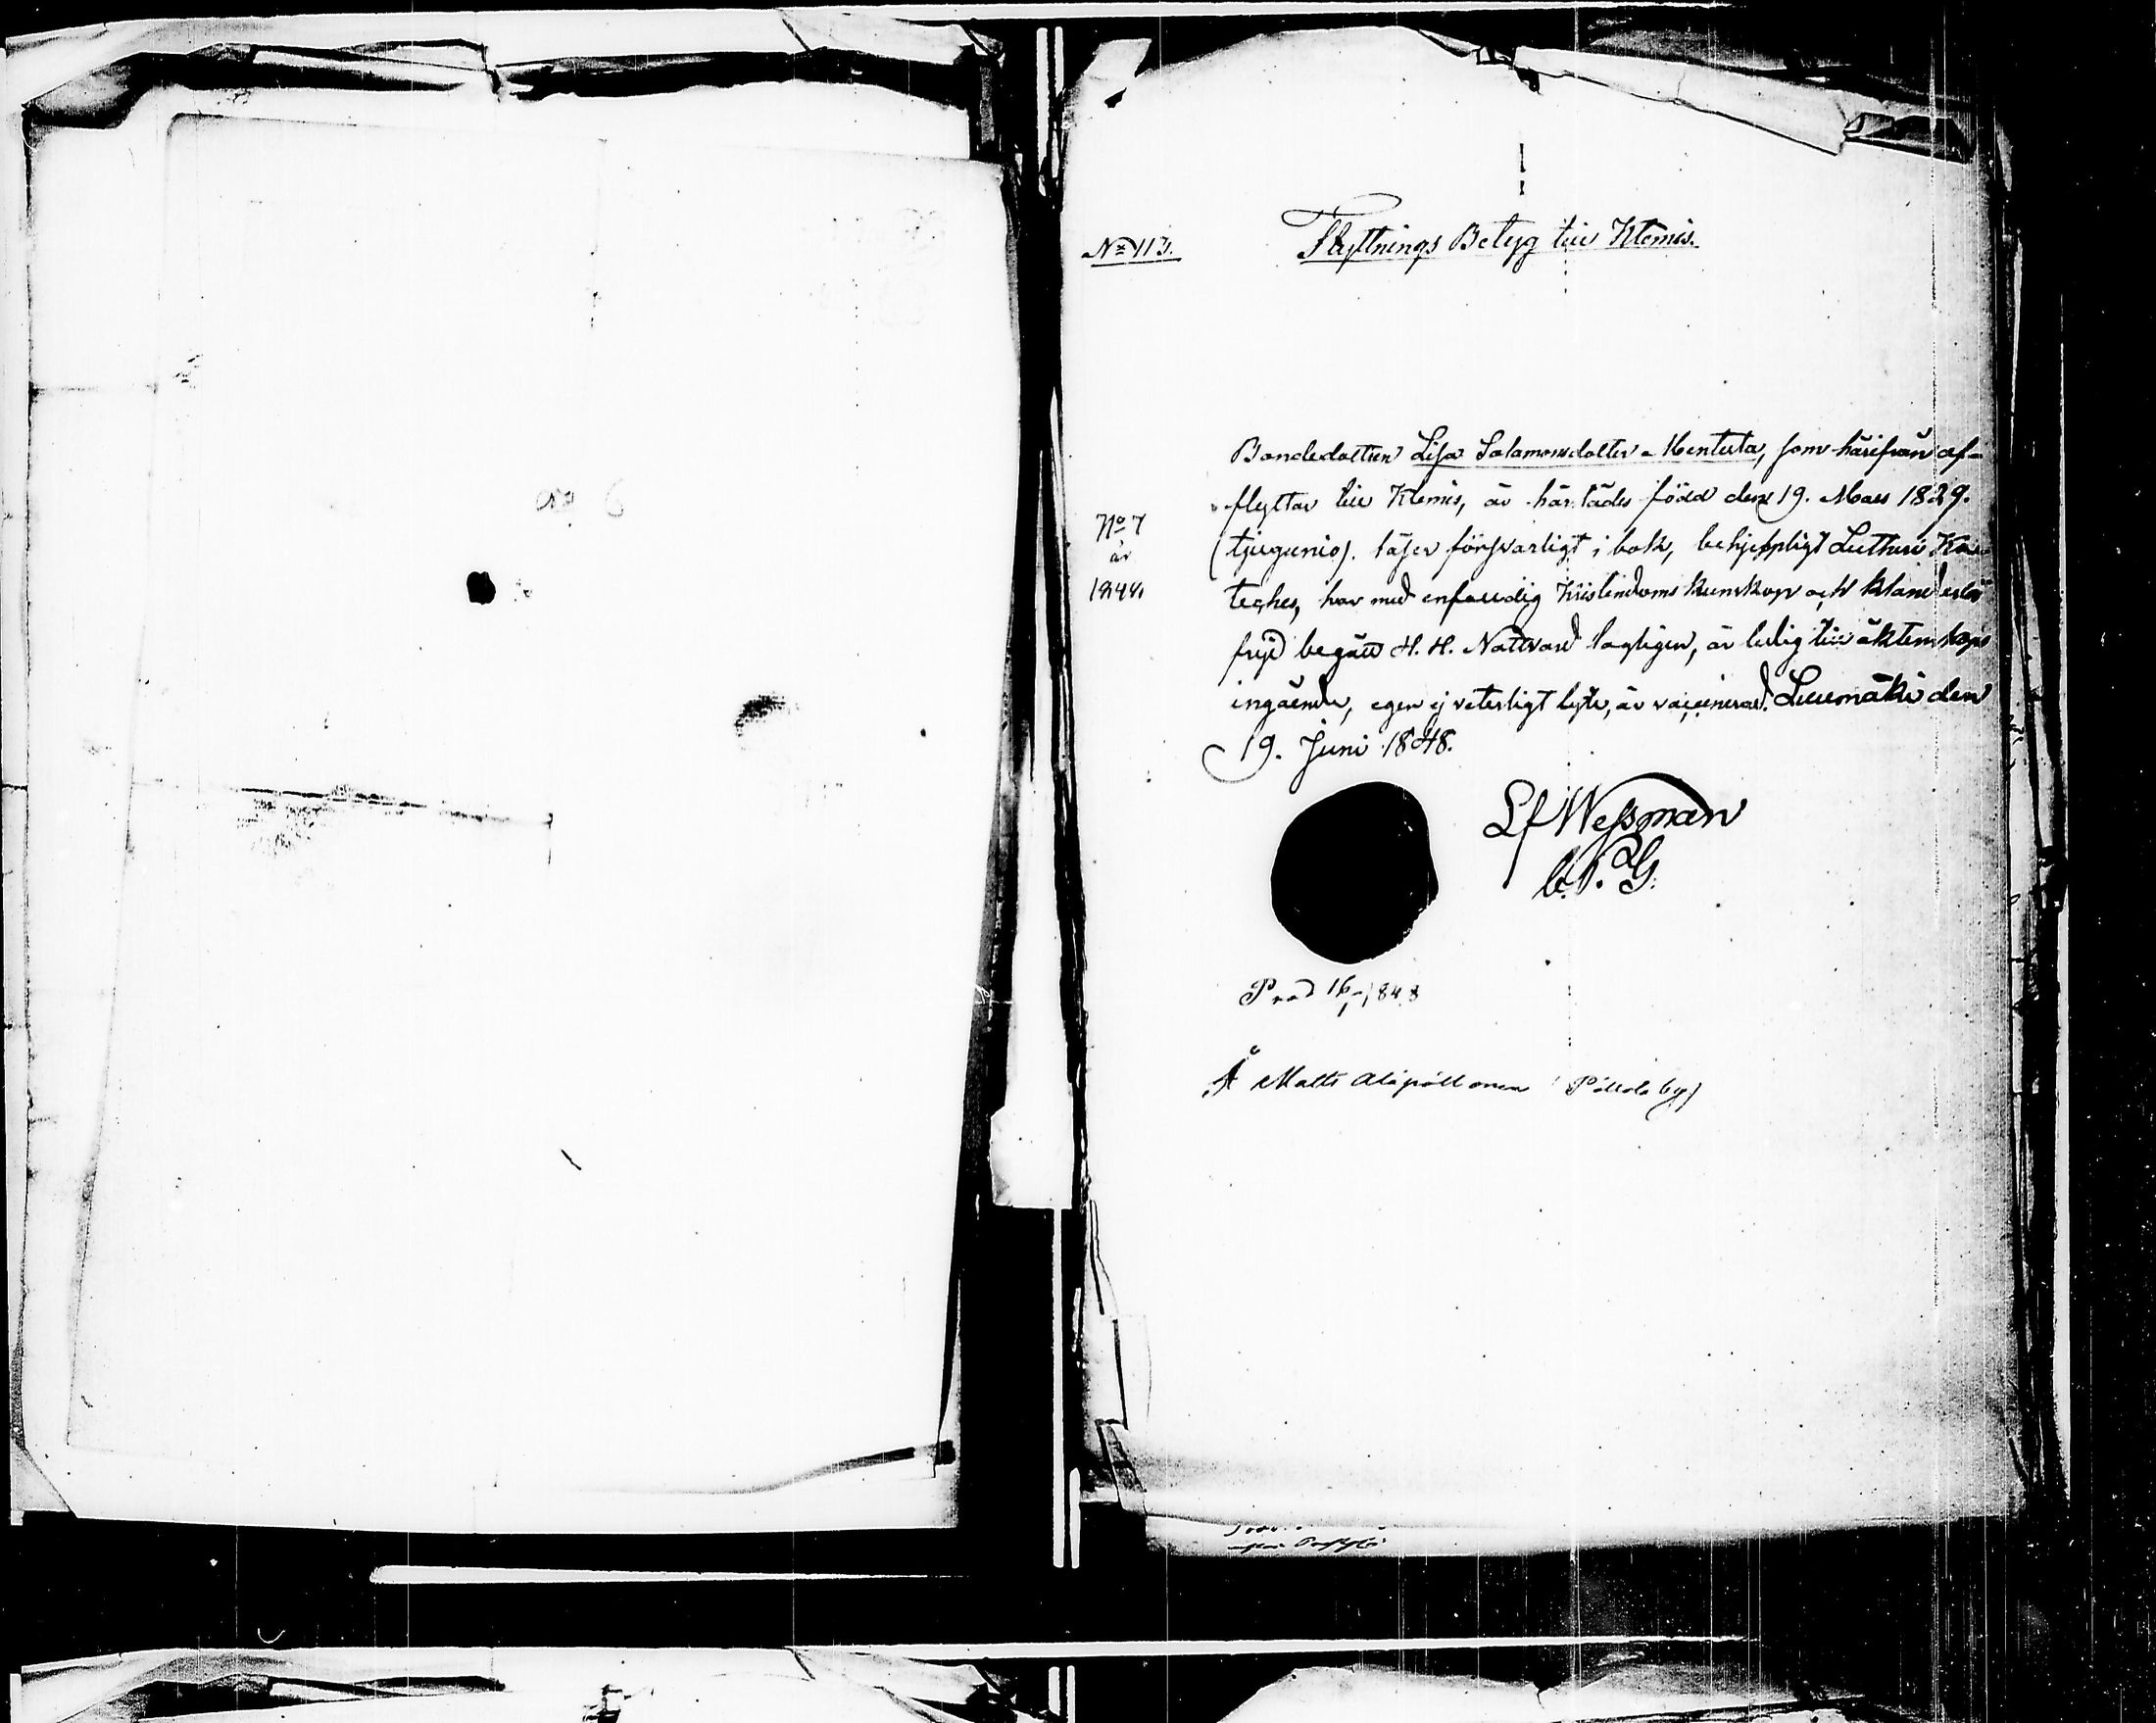 No 6
No 113.
Flyttnings Betyg till Klemis.
Bondedottren Lisa Salamonsdotter Mentula, som härifrån af-
flyttar till Klemis, är härstädes född den 19. Mars 1829.
(tjugunio). läser försvarligt i bok, behjelpligt Lutheri Ka-
teches, har med enfaldig Kristendoms kunskap och klanderlös
frejd begått H. H. Nattvard lagligen, är ledig till äktenskaps
ingående, egen ej veterligt lyte, är vaccinerad. Luumäki den
19. Juni 1848.
No 7
år
1848.
Lf Wessman
v. P. G.
Prod 16 1848
Å Matts Alapöllänen (Pöllälä by)